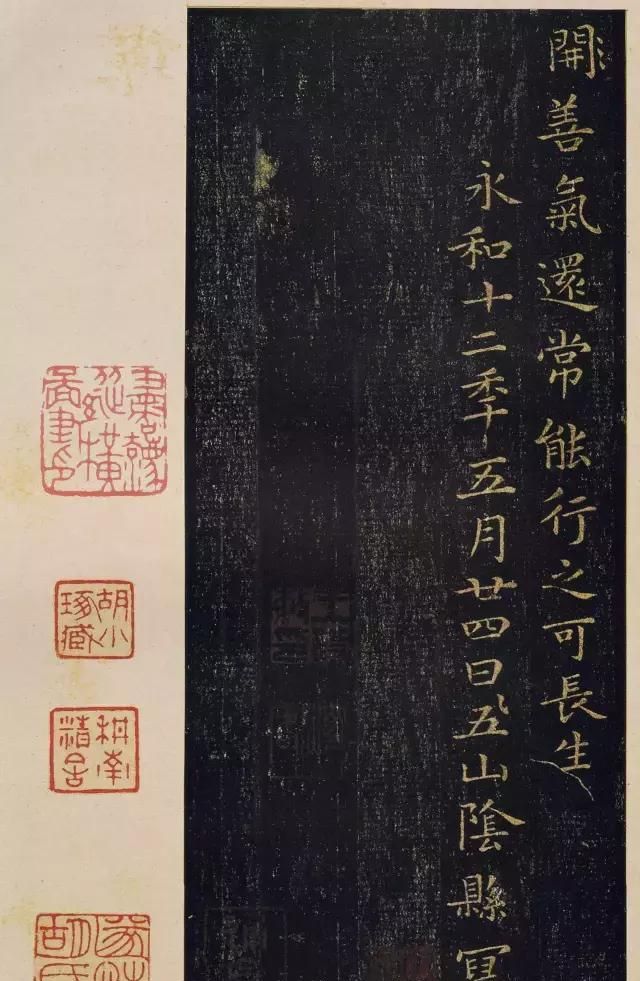 開善氣還常能行之可長生
永和十二秊五月廿四日五山陰縣寫
胡小琢藏